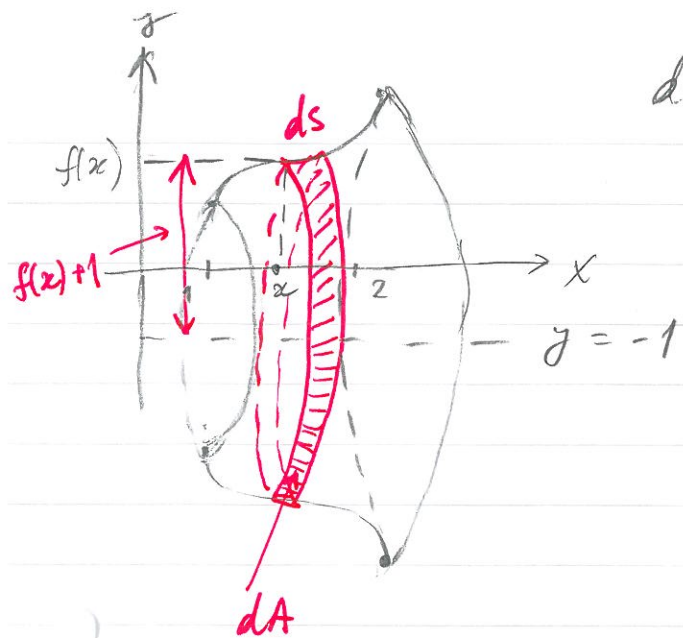 y
d
ds
f(x)
f(x)+1
1
x
2
X
y = -1
dA